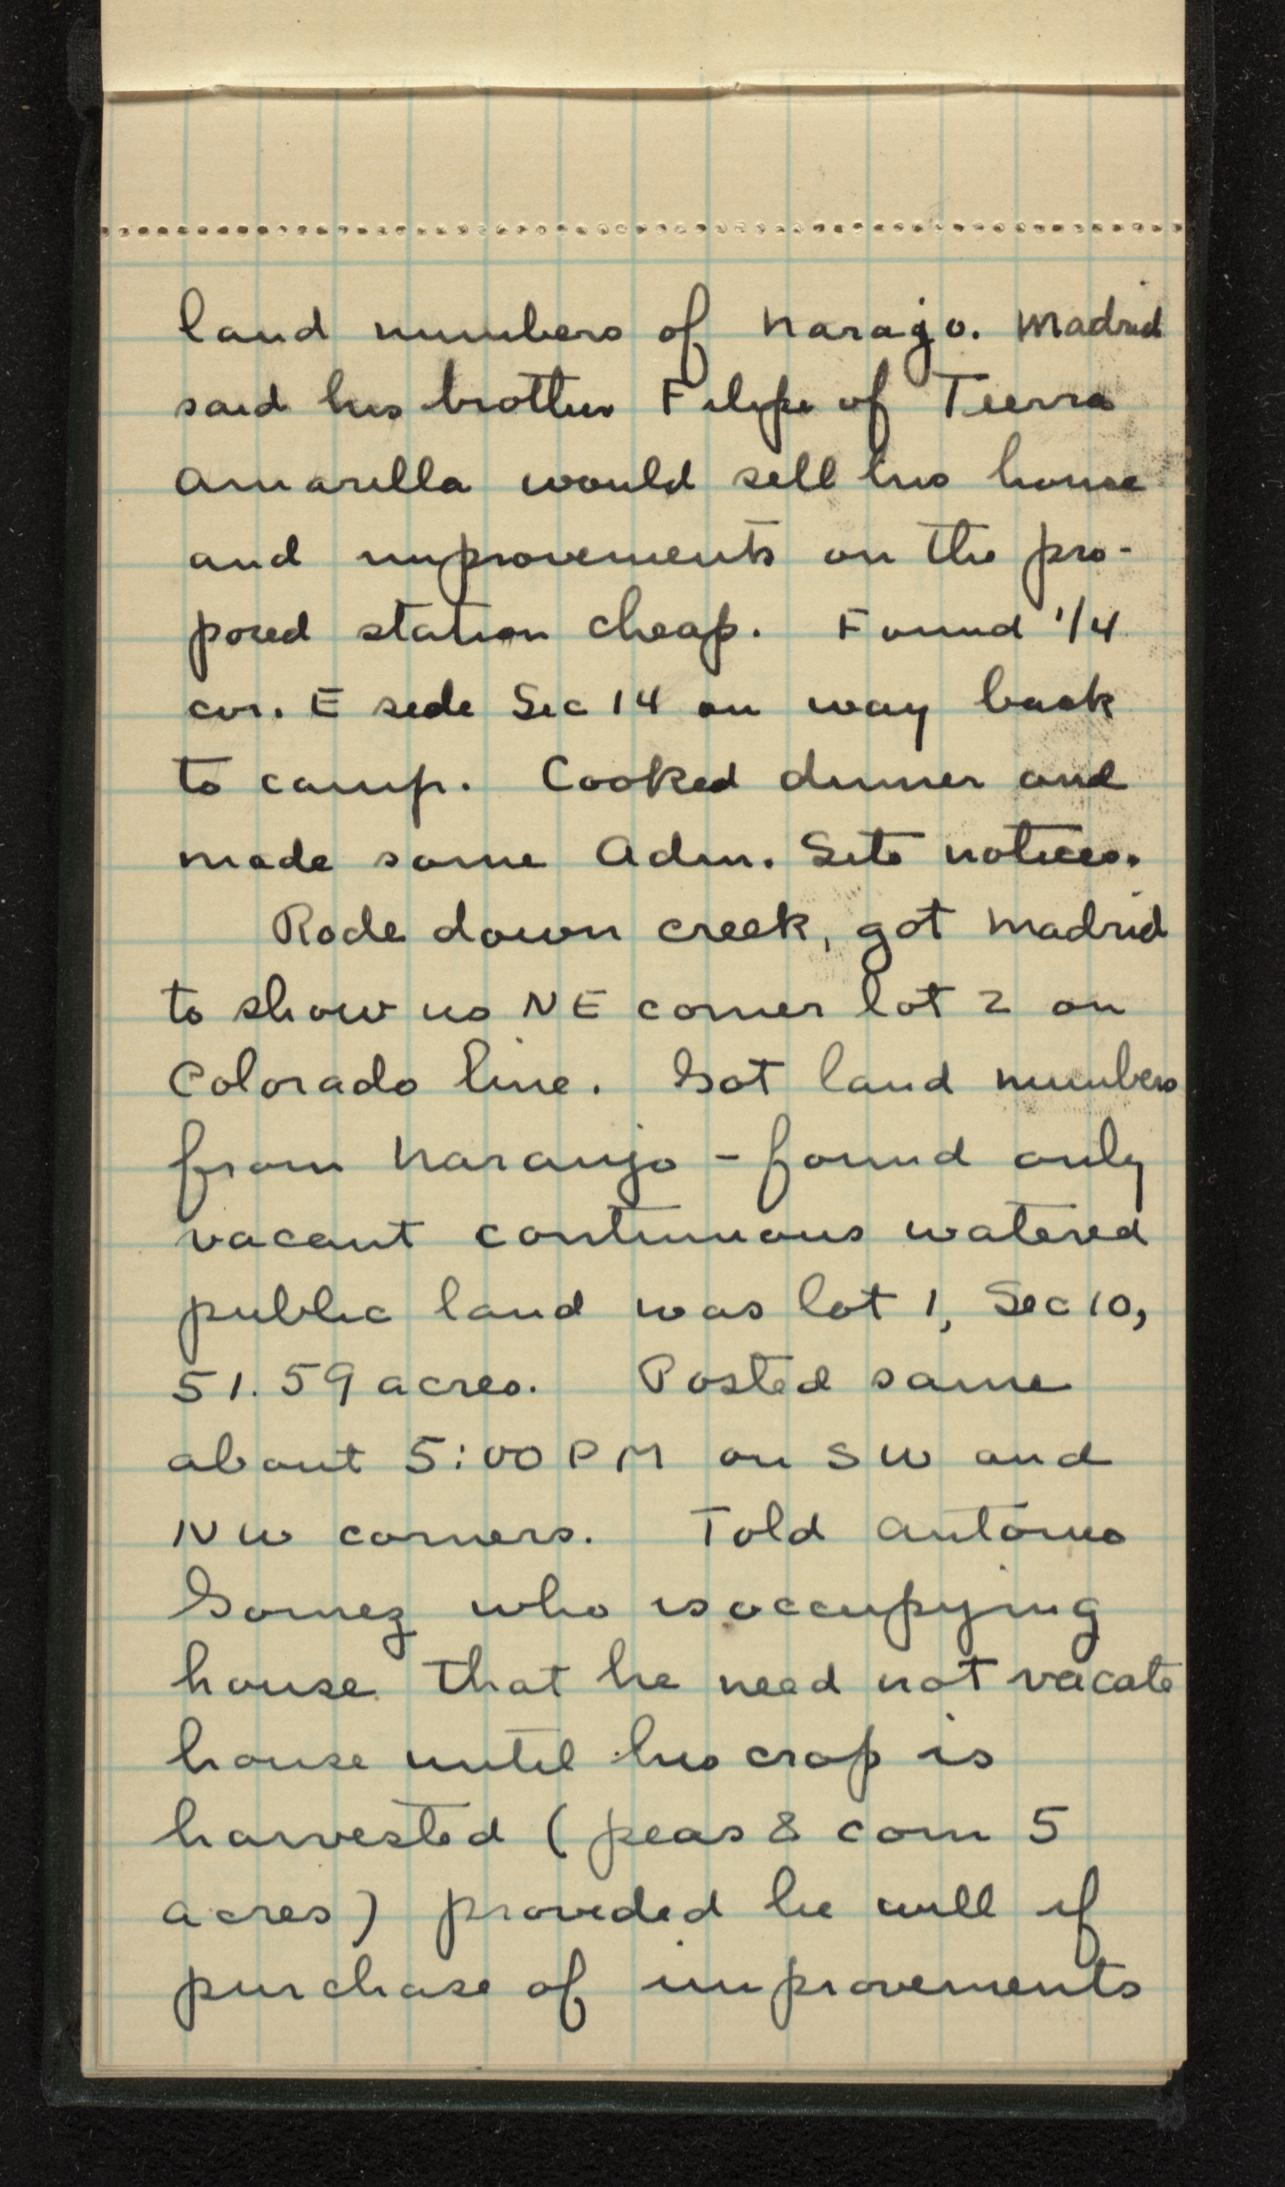 land numbers of Narajo. Madrid
said his brother Filipe of Tierra
Amarilla would sell his house
and improvements on the pro-
posed station cheap. Found 1/4
cor. E side Sec 14 on way back
to camp. Cooked dinner and
made some Adm. Site notices.
Rode down creek, got Madrid
to show us NE corner lot 2 on
Colorado line. Got land numbers
from Naranjo - found only
vacant continuous watered
public land was lot 1, Sec 10,
51.59 acres. Posted same
about 5:00 PM on SW and
NW corners. Told Antonio
Gomez who is occupying
house that he need not vacate
house until his crop is
harvested (peas & corn 5
acres) provided he will if
purchase of improvements